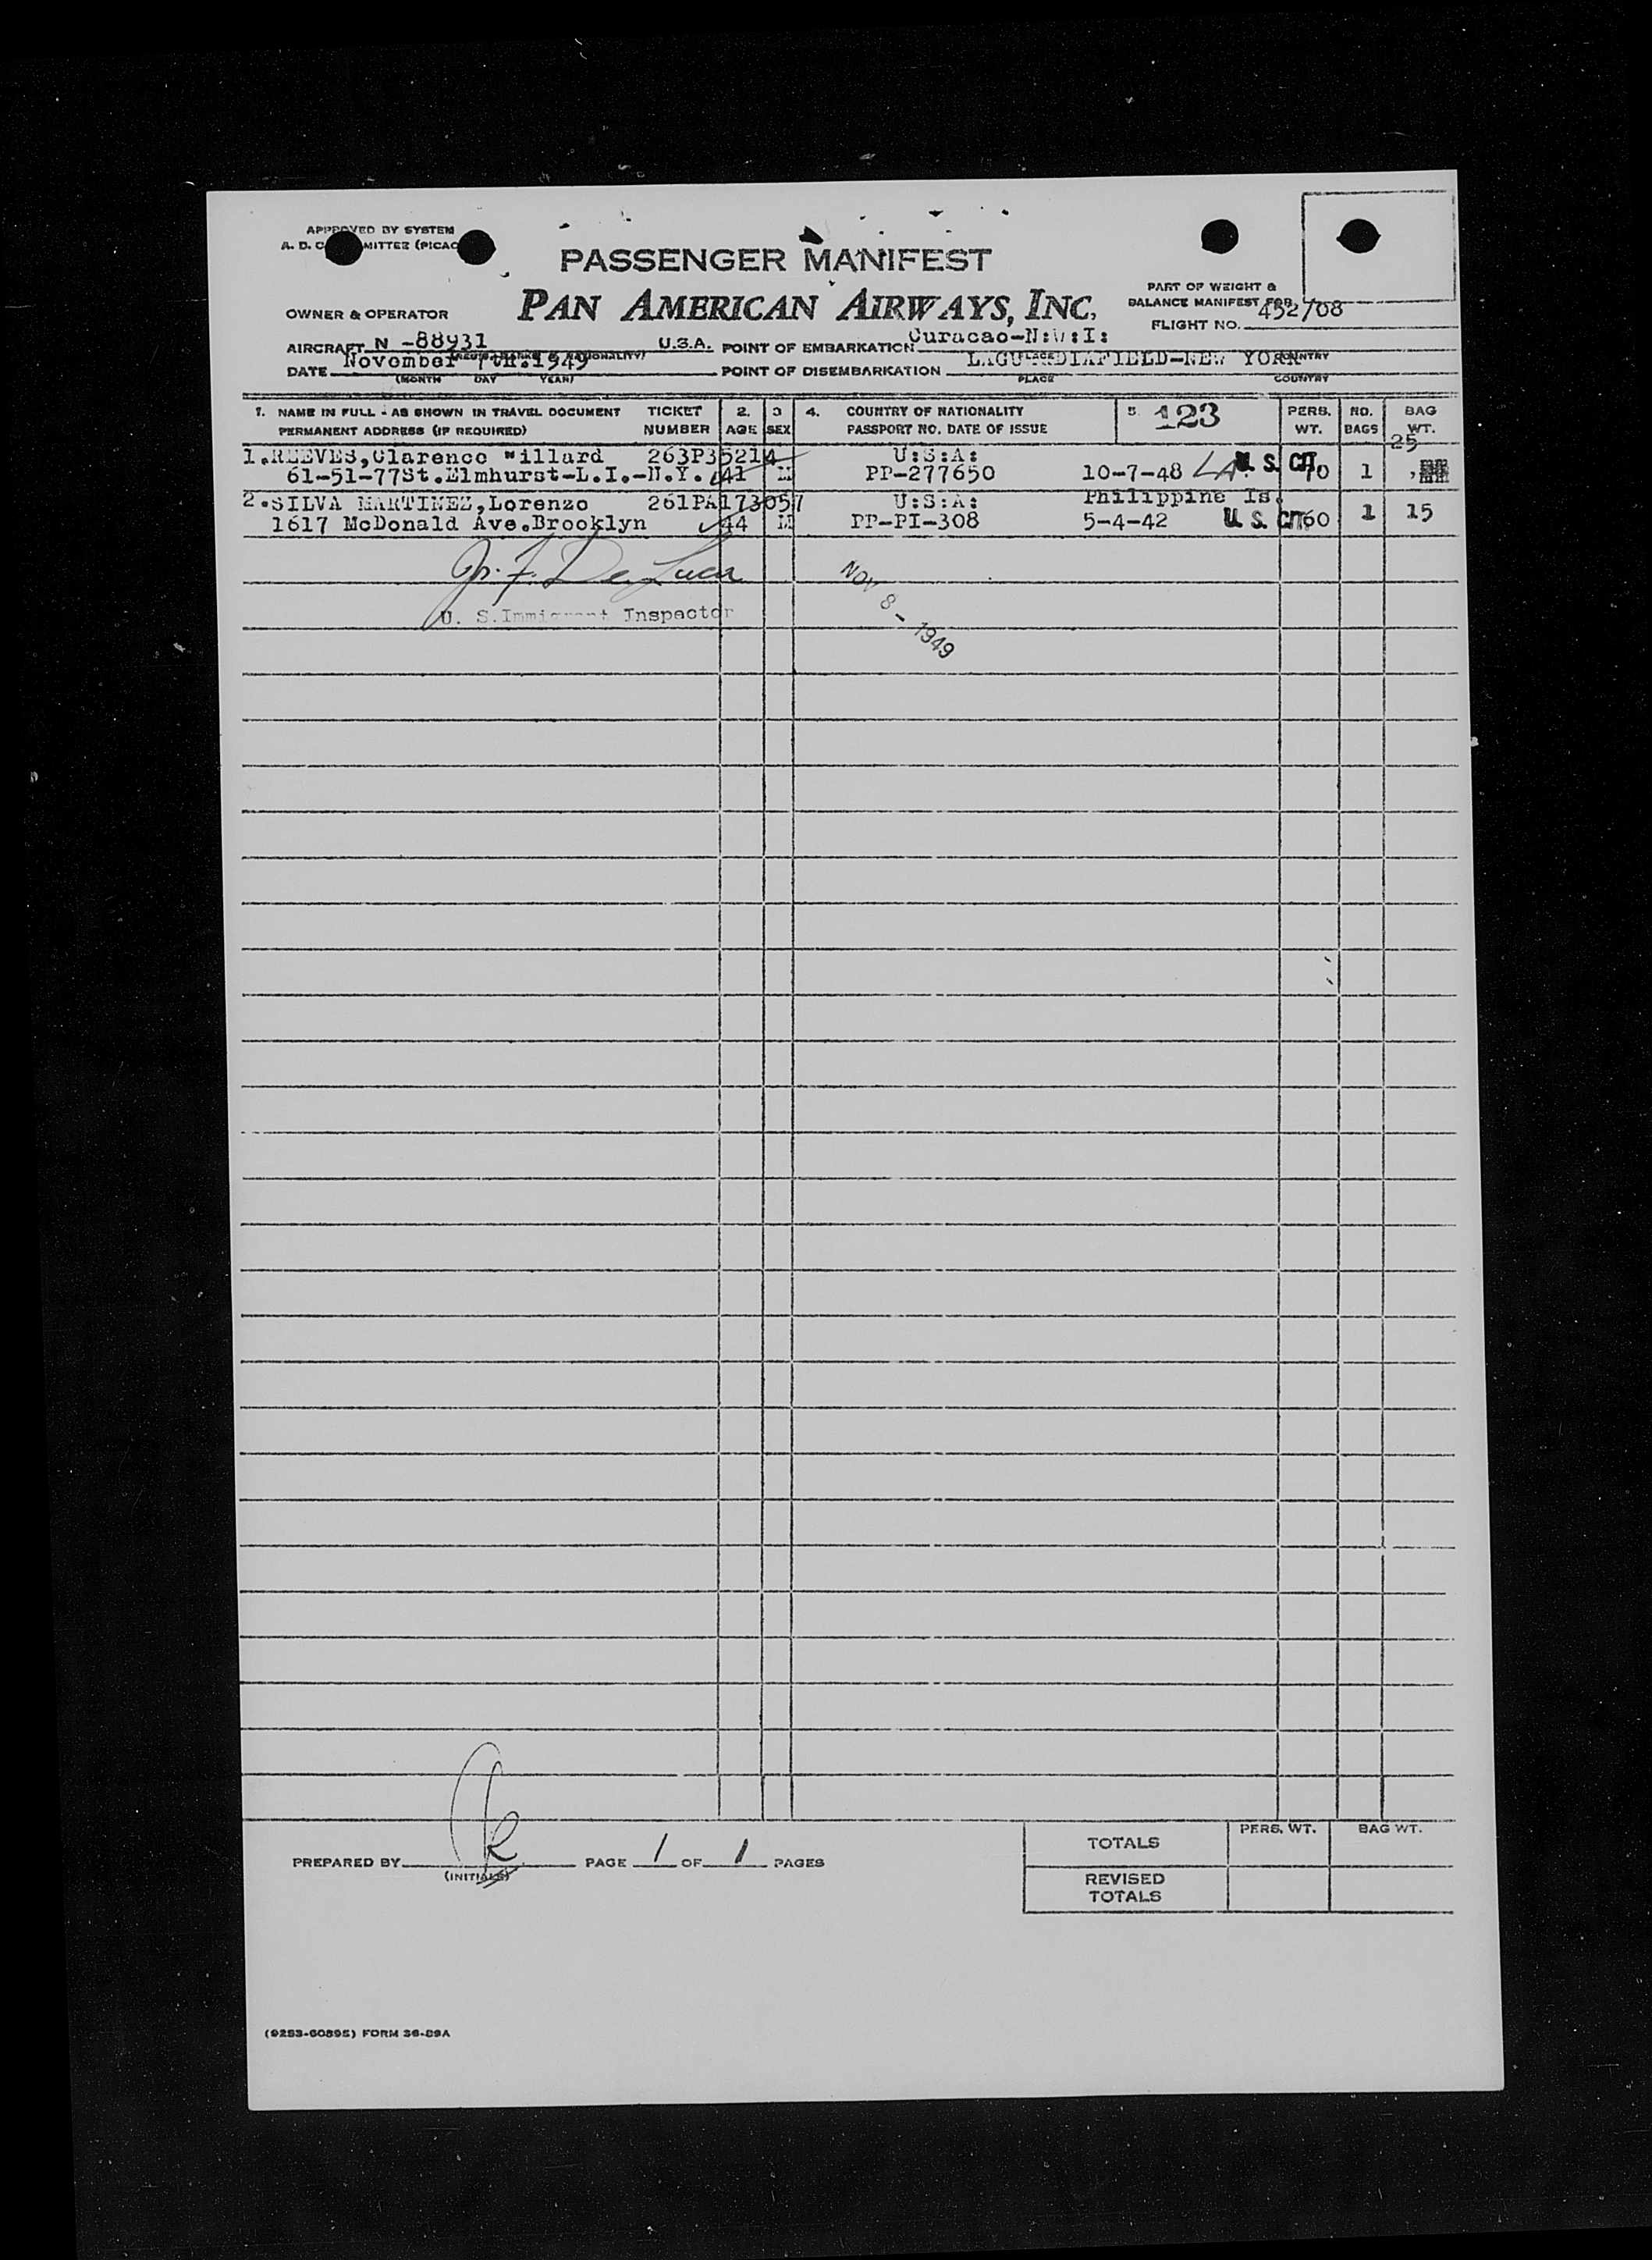 APPROVED BY SYSTEM
PASSENGER MANIFEST
PAN AMERICAN AIRWAYS, INC.
PART OF WEIGHT &
BALANCE MANIFEST FOR
FLIGHT NO. 452/08
OWNER & OPERATOR
AIRCRAFT N -88931 U.S.A. POINT OF EMBARKATION Curacao-N:W:I:
DATE November 7th.1949 POINT OF DISEMBARKATION LAGUARDIAFIELD-NEW YORK
(MONTH DAY YEAR) PLACE COUNTRY
1. NAME IN FULL - AS SHOWN IN TRAVEL DOCUMENT TICKET 2. 3 4. COUNTRY OF NATIONALITY 5. 123 PERS. NO. BAG
PERMANENT ADDRESS (IF REQUIRED) NUMBER AGE SEX PASSPORT NO. DATE OF ISSUE WT. BAGS WT.
25
1.REEVES,Clarence Willard 263P35214 U:S:A:
61-51-77St.Elmhurst-L.I.-N.Y. 41 M PP-277650 10-7-48 LA. U. S. CIT. 70 1
2.SILVA MARTINEZ,Lorenzo 261PA173057 U:S:A: Philippine Is.
1617 McDonald Ave.Brooklyn 44 M PP-PI-308 5-4-42 U. S. CIT. 60 1 15
De Luca
NOV 8 - 1949
U. S. Immigrant Inspector
PERS. WT. BAG WT.
TOTALS
PREPARED BY PAGE 1 OF 1 PAGES
(INITIALS)
REVISED
TOTALS
(9253-60895) FORM 36-89A